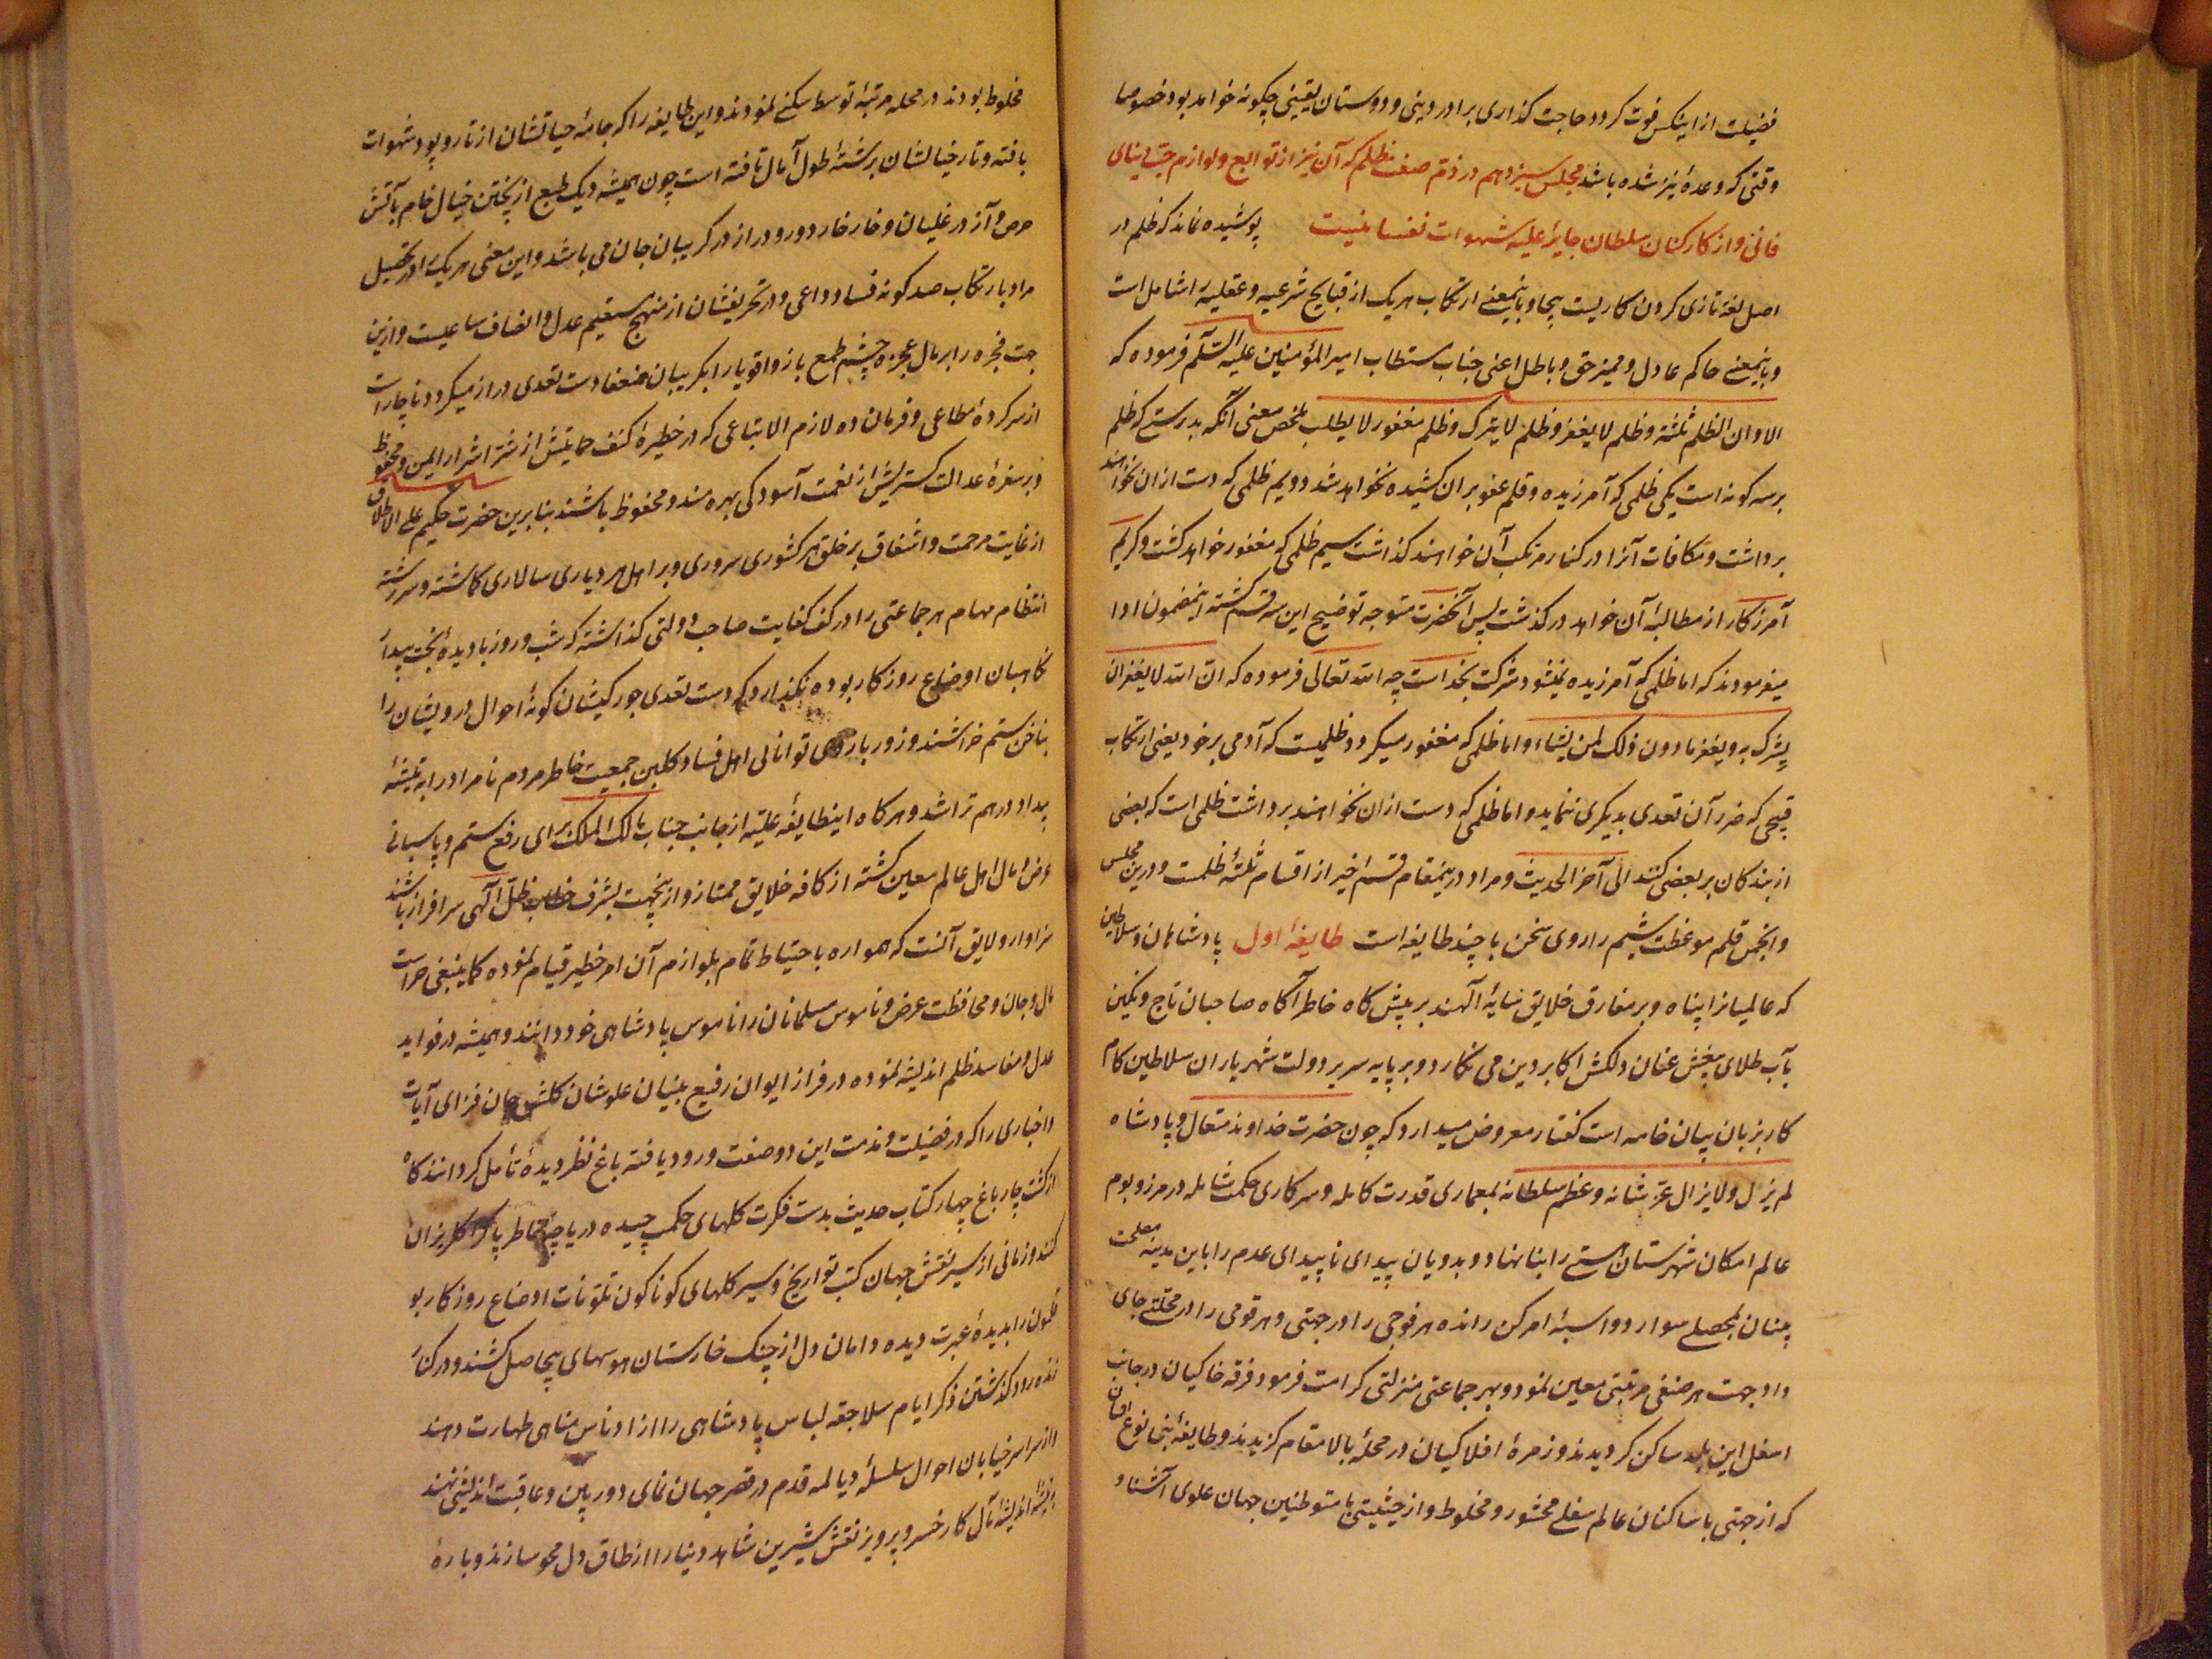 فضیلت از اینکس فوت کردد و حاجت کذاری برادر دینی و دوستان یقینی چکونه خواهد بود خصوصا
وقتی که وعدهٔ نیز شده باشد مجلس سیزدهم در ذمّ صفت ظلم که آن نیز از توابع و لوازم حبّ دنیای
فانی و از کارکنان سلطان جایر علیه شهوات نفسانیست پوشیده نماند که ظلم در
اصل لغة تازی کردن کاریست بیجا و باینمعنے ارتکاب هریک از قبایح شرعیه و عقلیه را شامل است
و باینمعنے حاکم عادل و ممیز حق و باطل اعنی جناب مستطاب امیر المؤمنین علیه السّلم فرموده که
الا و ان الظلم ثلثة و ظلم لا یغفر و ظلم لا یترک و ظلم مغفور لا یطلب ملخص معنی آنکه بدرستے که ظلم
بر سه کونه است یکی ظلمی که آمرزیده و قلم عفو بر ان کشیده نخواهد شد دویم ظلمی که دست از ان نخواهند
برداشت و مکافات آنرا در کنار مرتکب آن خواهند کذاشت سیم ظلمی که مغفور خواهد کشت و کریم
آمرزکار از مطالبهٔ آن خواهد در کذشت پس آنحضرت متوجه توضیح این سه قسم کشته اینمضمون ادا
میفرمودند که اما ظلمی که آمرزیده نمیشود شرکت بخداست چه الله تعالی فرموده که ان الله لا یغفر ان
یشرک به و یغفر ما دون ذلک لمن یشاء و اما ظلمی که مغفور میکردد ظلمیست که آدمی بر خود یعنی ارتکاب
قبیحی که ضرر آن تعدی بدیکری ننماید و اما ظلمی که دست از ان نخواهند برداشت ظلمی است که بعضی
از بندکان بر بعضی کنند الی آخر الحدیث و مراد در اینمقام قسم اخیر از اقسام ثلثهٔ ظلمست و درین مجلس
و انجمن قلم موعظت شیم را روی سخن با چند طایفه است طایفهٔ اول پادشاهان و سلاطین
که عالمیانرا پناه و بر مفارق خلایق سایهٔ الهند بر پیش کاه خاطر آکاه صاحبان تاج و نکین
بآب طلای بیغش عنان دلکش اکابر دین می نکارد و بر پایه سریر دولت شهریاران سلاطین کام
کار بزبان بیان خامه است کفتار معروض میدارد که چون حضرت خداوند متعال و پادشاه
لم یزل و لا یزال عزّ شانه و عظم سلطانه بمعماری قدرت کامله و سرکاری حکمت شامله در مرز و بوم
عالم امکان شهرستان هستے را بنا نهاد و بدویان پیدای ناپیدای عدم را باین مدینه مصلحت
بنیان بمحصلے سوار دو اسبهٔ امر کن رانده هر فوجی را در جهتی و هر قومی را در محلّتے جای
داد و جهت هر صنفی مرتبتی معین نمود و بهر جماعتی منزلتی کرامت فرمود فرقه خاکیان در جانب
اسفل این بلد ساکن کردیدند و زمرهٔ افلاکیان در محلهٔ بالا مقام کزیدند و طایفهٔ بنی نوع انسان
که از جهتی با ساکنان عالم سفلے محشور و مخلوط و از حیثیتی با متوطنین جهان علوی آشنا و
مخلوط بودند در محله مرتبهٔ توسط سکنے نمودند و این طایفه را که جامهٔ حیاتشان از تار و پود شهوات
بافته و تار خیالشان بر شتهٔ طول آمال تافته است چون همیشه دیک طبع از پختن خیال خام بآتش
حرص و آز در غلیان و خار خار دور و دراز در کریبان جان می باشد و این معنی هریک را در تحصیل
مراد بارتکاب صد کونه فساد داعی و در تحریفشان از منهج مستقیم عدل و انصاف ساعیست و ازین
جهت فجره را بر مال عجزه چشم طمع باز و اقویا را بکریبان ضعفا دست تعدی دراز میکردد ناچار است
از سرکردهٔ مطاعی و فرمان ده لازم الاتباعی که در حظیرهٔ کنف حمایتش از شرّ اشرار ایمن و محفوظ
و بر سفرهٔ عدالت کستریش از نعمت آسودکی بهره مند و محفوظ باشند بنابرین حضرت حکیم علے الاطلاق
از غایت مرحمت و اشفاق بر خلق هر کشوری سروری و بر اهل هر دیاری سالاری کماشته و سررشته
انتظام مهام هر جماعتی را در کف کفایت صاحب دولتی کذاشته که شب و روز با دیدهٔ بخت بیدار
نکاهبان اوضاع روزکار بوده نکذارد که دست تعدی جور کیشان کونهٔ احوال درویشان را
بناخن ستم خراشند و زور بازوی توانائی اهل فساد کلبن جمعیت خاطر مردم نامراد را به تیشهٔ
بیداد در هم تراشد و هرکاه اینطایفهٔ علیّه از جانب جناب مالک الملک برای رفع ستم و پاسبانی
عرض و مال اهل عالم معین کشته از کافه خلایق ممتاز و ازینجهت بشرف خطاب ظلّ الهی سرافراز باشند
سزاوار و لایق آنست که همواره باحتیاط تمام بلوازم آن امر خطیر قیام نموده کما ینبغی حراست
مال و جان و محافظت عرض و ناموس مسلمانان را ناموس پادشاهی خود دانند و همیشه در فواید
عدل و مفاسد ظلم اندیشه نموده در فراز ایوان رفیع بنیان علو شان کلشن جان فزای آیات
و اخباری را که در فضیلت و مذمت این دو صفت ورود یافته باغ نظر دیدهٔ تأمل کردانند کاه
از کشت چار باغ چهار کتاب حدیث بدست فکرت کلهای حکمت چیده در باچهٔ خاطر پاک را کلریزان
کنند و زمانی از سیر نقش جهان کتب تواریخ و سیر کلهای کوناکون تلوّنات اوضاع روزکار بو
قلمون را بدیدهٔ عبرت دیده دامان دل از چنک خارستان هوسهای بیحاصل کشند و در کنار
زنده رود کذشتن ذکر ایام سلاجقه لباس پادشاهی را از ادناس مناهی طهارت دهند
و از سراسر خیابان احوال سلسلهٔ دیالمه قدم در قصر جهان نمای دوربین و عاقبت اندیشی نهند
تیشهٔ اندیشهٔ مآل کار خسرو پرویز نقش شیرین شاهد دنیا را از طاق دل محو سازند و بارهٔ